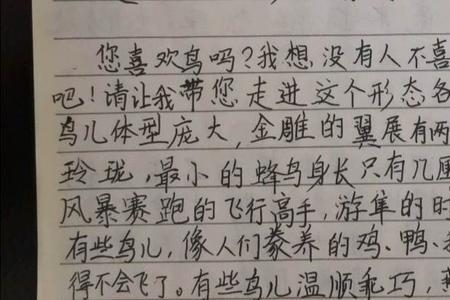 您喜欢鸟吗？我想没有人不喜
吧！请让我带您走进这个形态各
鸟儿体型庞大，金雕的翼展有两
玲珑，最小的蜂鸟身长只有几厘
风暴赛跑的飞行高手，游隼的时
有些鸟儿，像人们豢养的鸡、鸭、
得不会飞了。有些鸟儿温顺乖巧，